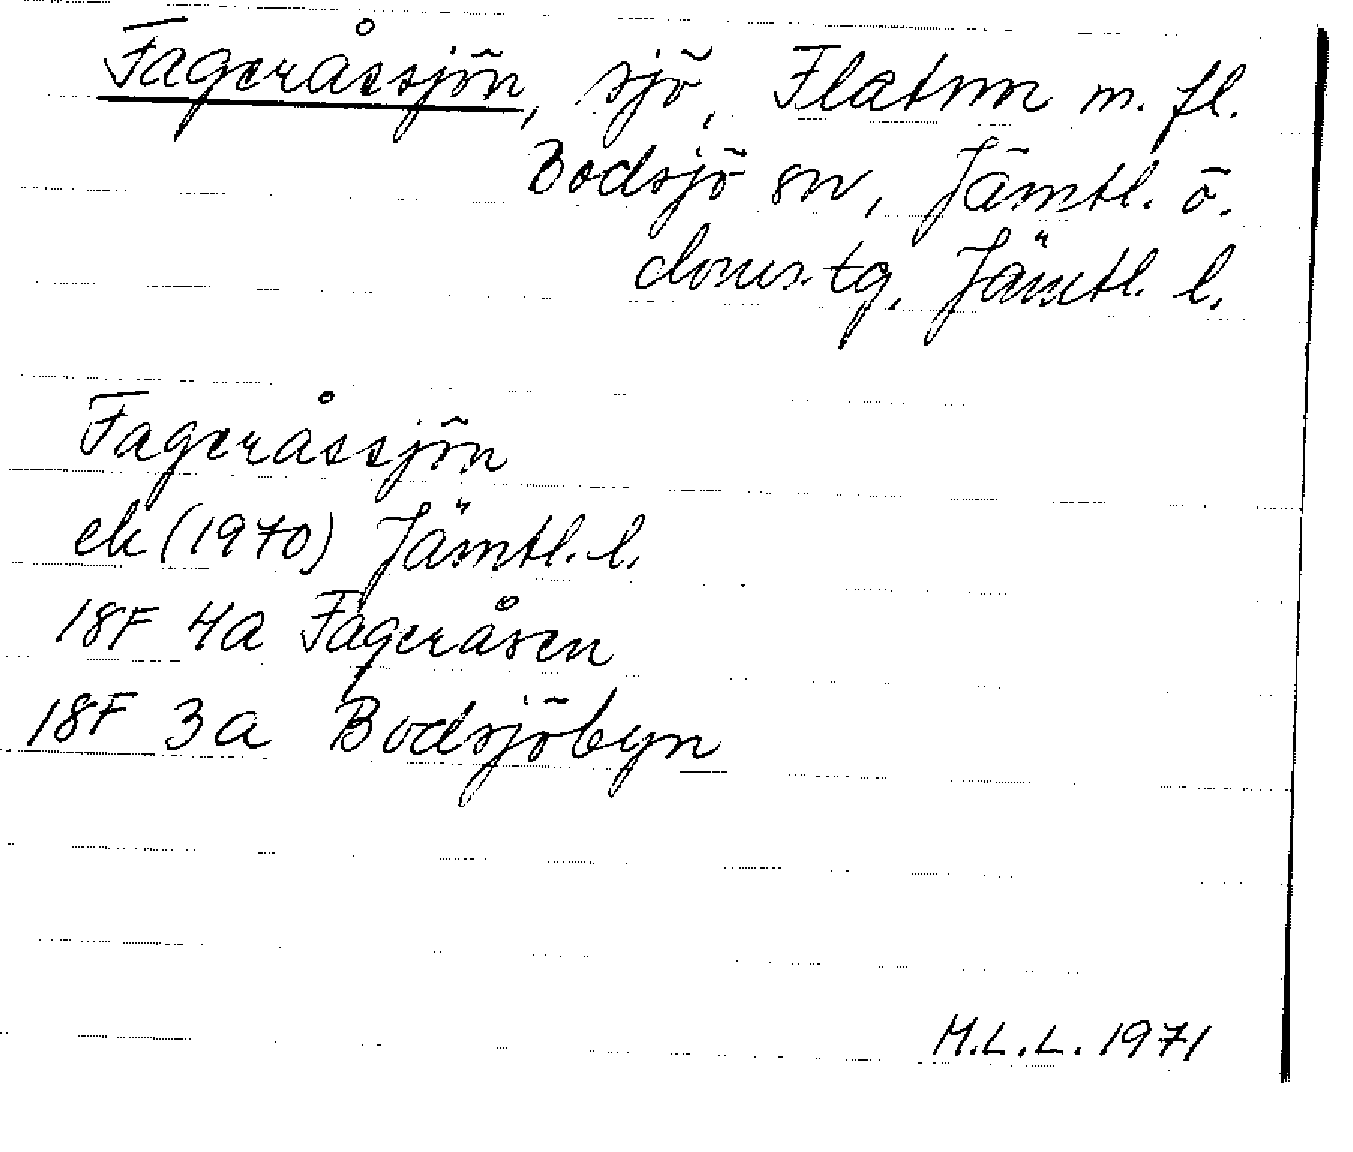 Fageråssjön, sjö, Flatnor m. fl.
Bodsjö sn, Jämtl. ö.
doms.tg, Jämtl. l.
Fageråssjön
ek (1970) Jämtl. l.
18F 4a Fageråsen
18F 3a Bodsjöbyn
M.L.L. 1971